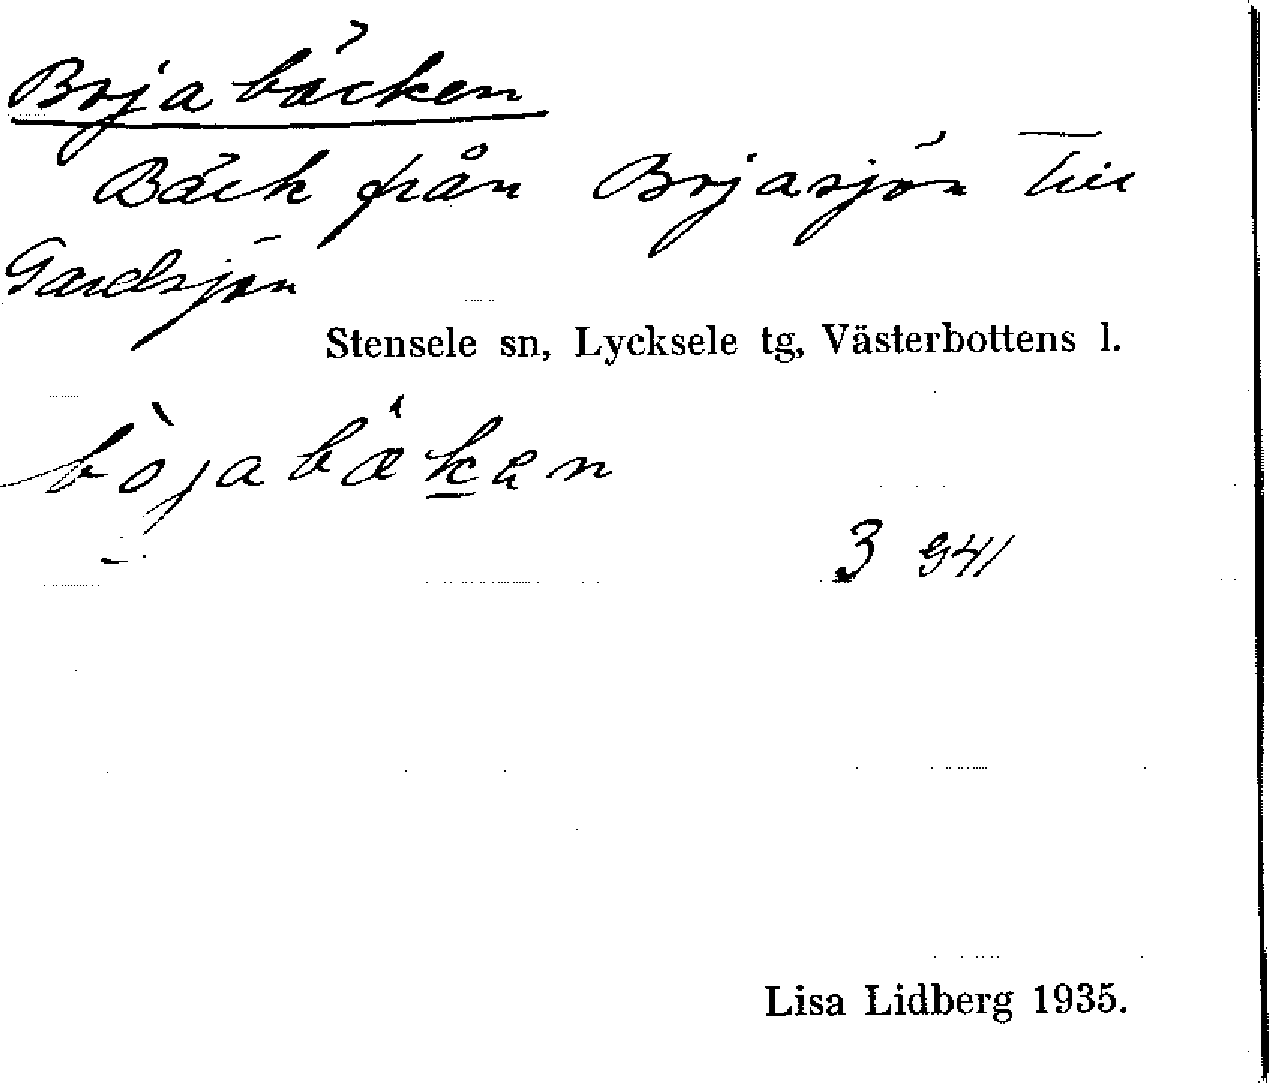 Borjabäcken
Bäck från Borjasjön till
Gardsjön
Stensele sn, Lycksele tg, Västerbottens l.
bòjabækan
3 941
Lisa Lidberg 1935.